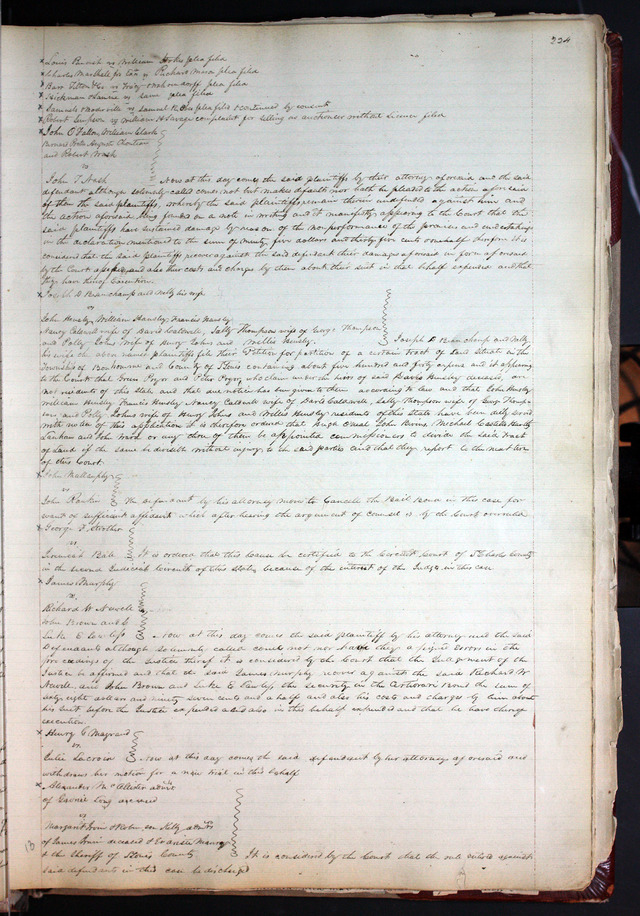 224
x Louis Benoit vs William Stokes plea filed
x Charles Marshall for Coll vs Pachard Mason plea filed
x Barr Tilton & Co vs plea filed
x Hickman & vs same plea filed
x Samuels & vs Samuel R plea filed & continued by consent
x Robert Simpson vs William H Savage complaint for selling as auctioneer without license filed
x John O'Fallon, William Clark
Bernard Pratte Auguste Chouteau
and Robert Wash
vs
John T Nash Now at this day comes the said plaintiffs by their attorney aforesaid and the said
defendant although solemnly called comes not but makes default nor hath he pleaded to the action aforesaid
of them the said plaintiffs, whereby the said plaintiffs remain therein undefended against him and
the action aforesaid being founded on a note in writing and it manifestly appearing to the Court that the
said plaintiffs have sustained damage by reason of the nonperformance of the promises and undertakings
in the declaration mentioned to the sum of ninety five dollars and thirty five cents one half therefore it is
considered that the said plaintiffs recover against the said defendant their damages aforesaid in form aforesaid
by the Court assessed and also their costs and charges by them about their suit in that behalf expended and that
they have thereof Execution.
x Joseph D Beauchamp and Nelly his wife
vs
John Hensley, William Hensley, Francis Hensley
Nancy Caldwell wife of David Caldwell, Sally Thompson wife of George Thompson
and Polly Johns wife of Henry Johns and Willis Hensley. Joseph D Beauchamp and Nelly
his wife the above named plaintiffs file their Petition for partition of a certain tract of land situate in the
Township of Bonhomme and County of St Louis containing about five hundred and forty arpens and it appearing
to the Court that Green Pryor and Peter Pryor, who claim under the heirs of said David Hensley deceased, are
not residents of this State and that due notice has been given to them according to law and that John Hensley
William Hensley Francis Hensley Nancy Caldwell wife of David Caldwell, Sally Thompson wife of George Thomp-
son and Polly Johns wife of Henry Johns and Willis Hensley residents of this State have been duly served
with notice of this application it is therefore ordered that Hugh O'neal John Burns Michael Castello Hartly
Lanham and John Ward or any three of them be appointed commissioners to divide the said tract
of Land if the same be divisible without injury to the said parties and that they report to the next term
of this Court.
x John Mullanphy
vs
John Rankin The defendant by his attorney moves to Cancelle the Bail Bond in this case for
want of sufficient affidavit which after hearing the argument of counsel is by the Court overruled
x George F Strother
vs
Ball It is ordered that this cause be certified to the Circuit Court of St Charles County
in the second Judicial Circuit of this State because of the interest of the Judge in this case
x James Murphy
vs
Richard W Newell
John Brown and
Luke E Lawless Now at this day comes the said plaintiff by his attorney and the said
Defendants although solemnly called come not nor have they assigned errors in the
proceedings of the Justice thereof it is considered by the Court that the Judgement of the
Justice be affirmed and that the said James Murphy recover against the said Richard W
Newell and John Brown and Luke E Lawless the security in the Certiorari Bond the sum of
sixty eight dollars and ninety seven cents and a half and also his costs and charges by him about
his suit before the Justice expended and also in this behalf expended and that he have thereof
execution.
x Henry C Maynard
vs
Julie Lacroix Now at this day comes the said defendant by her attorney aforesaid and
withdraws her motion for a new trial in this behalf
x Alexander McAllister admr
of Gabriel Long deceased
vs
Margaret Irwin & Robinson Kelly admrs
of James Irwin deceased & Evariste Maury
& the Sheriff of St Louis County It is considered by the Court that the rule entered against
said defendants in this case be discharged
13